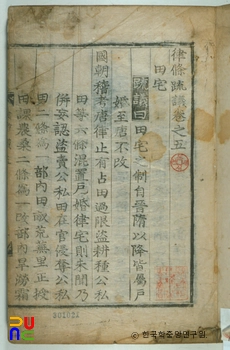 律條疏議卷之五
田宅
疏議曰田宅之制自晉隋以降皆屬戶
婚至唐不改
國朝稽考唐律止有占田過限盜耕種公私
田等六條混置戶婚律宅則未聞乃
併妄認盜賣公私田在官侵奪公私
田二條為一部內田疇荒蕪里正授
田課農桒二條為一改部內旱澇霜
한국학중앙연구원